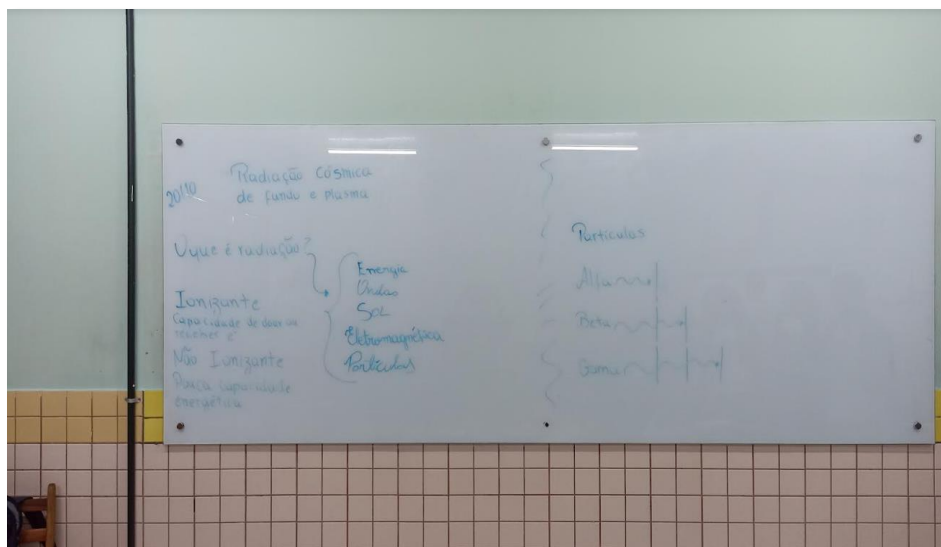 20/10
Radiação Cósmica
de fundo e plasma
O que é radiação?
Energia
Ondas
Sol
Eletromagnética
Partículas
Ionizante
Capacidade de doar ou
receber é
Não Ionizante
Pouca capacidade
energética
Partículas
Alfa
Beta
Gama